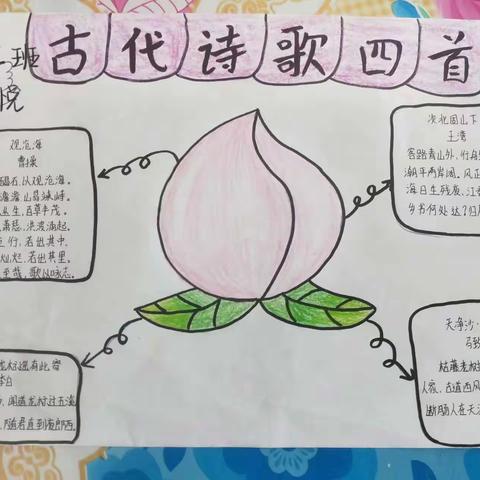 古代诗歌四首
班
悦
观沧海
曹操
碣石,以观沧海。
澹澹,山岛竦峙。
丛生,百草丰茂。
萧瑟,洪波涌起。
之行,若出其中。
灿烂,若出其里。
至哉,歌以咏志。
次北固山下
王湾
客路青山外,行舟
潮平两岸阔。风正
海日生残夜,江春
乡书何处达?归
龙标遥有此寄
李白
闻道龙标过五溪
随君直到夜郎西。
天净沙·
马致
枯藤老树
人家,古道西风
断肠人在天